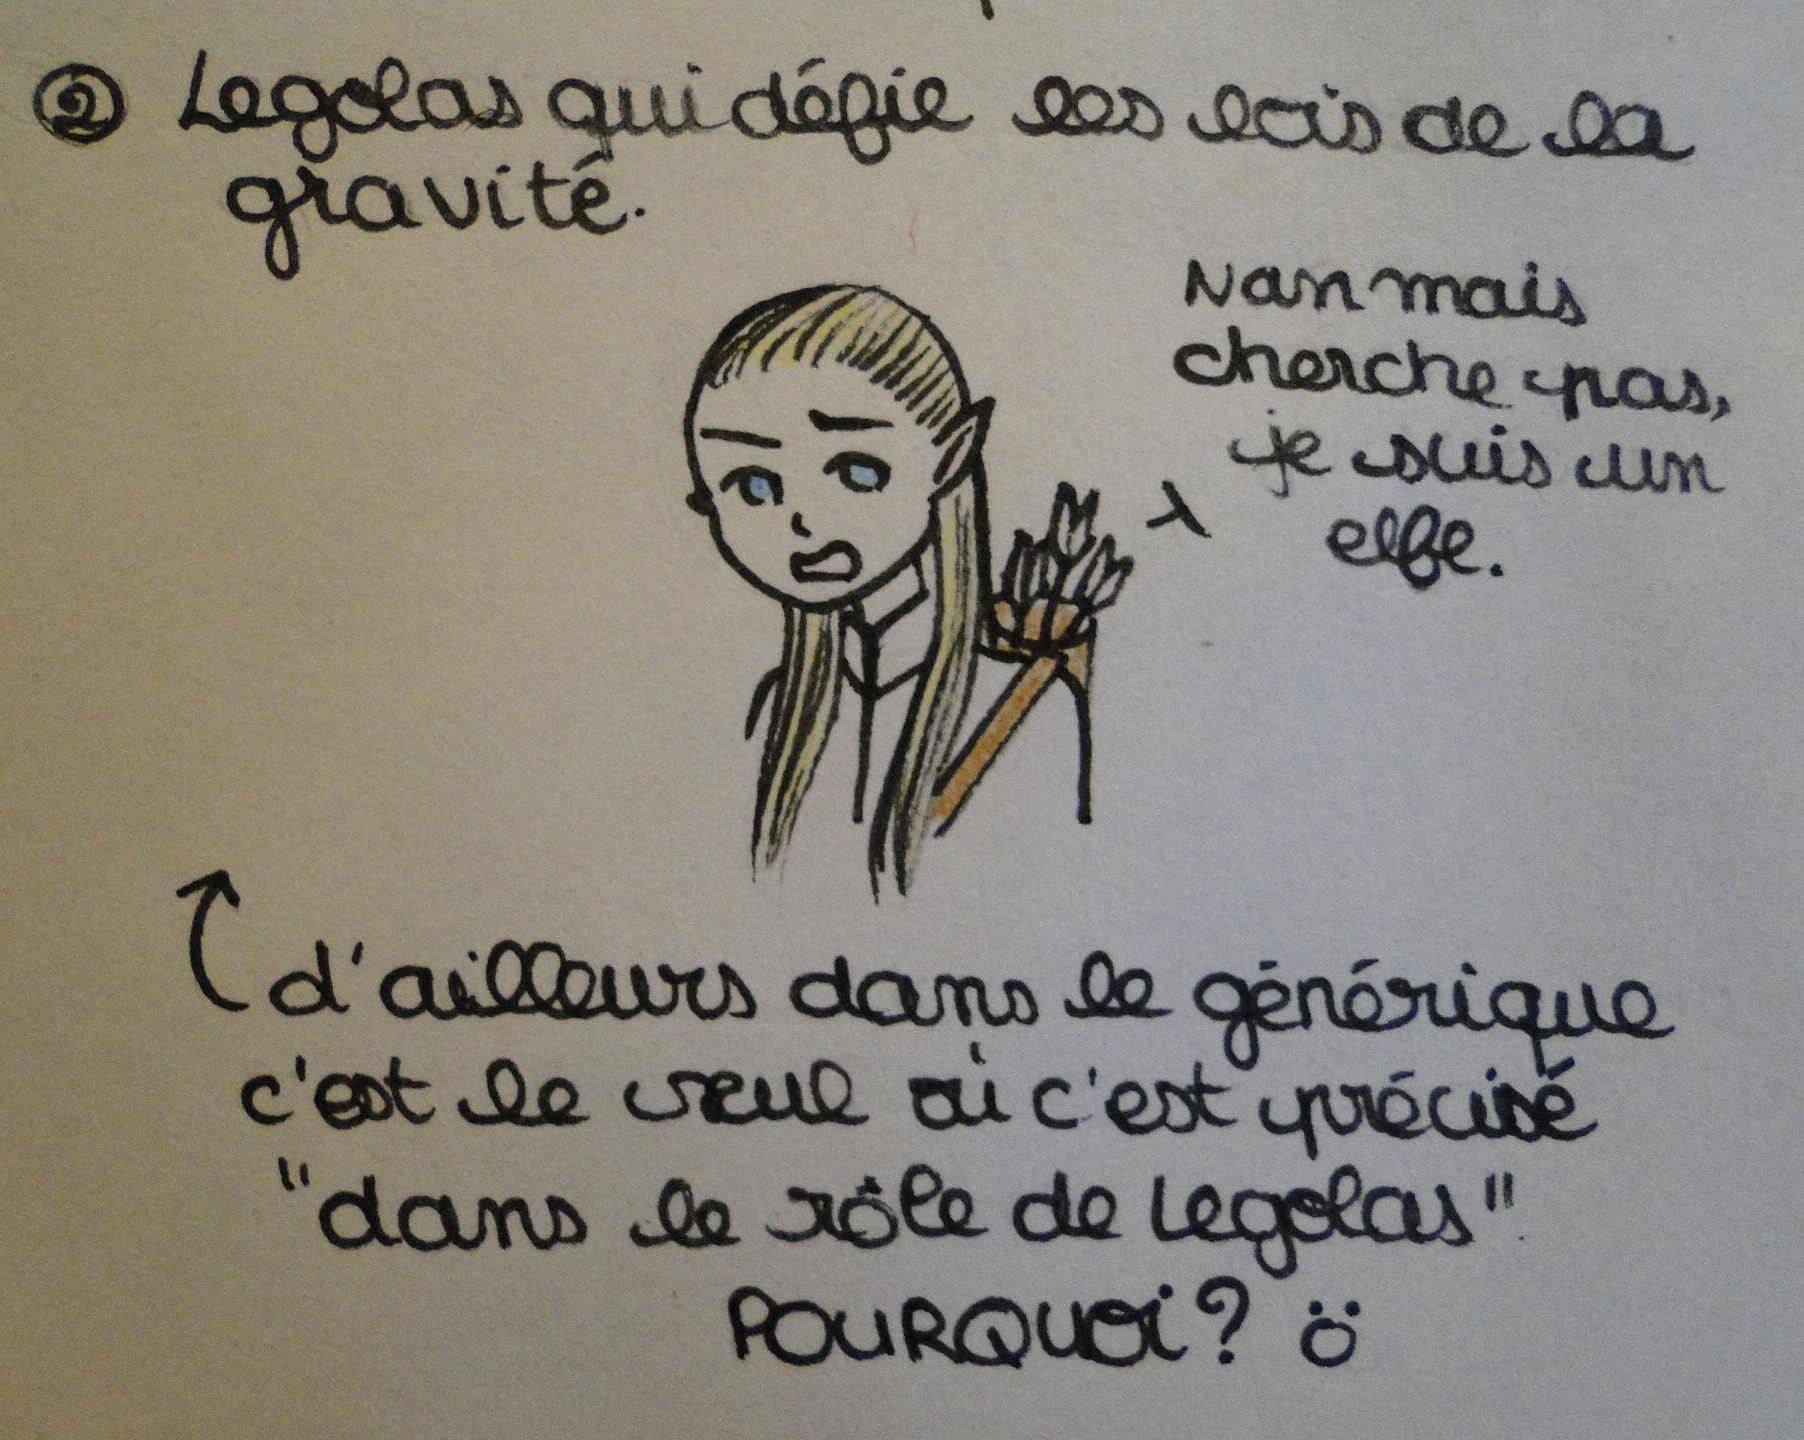 ② Legolas qui défie les lois de la
gravité.
Nan mais
cherche pas,
je suis un
elfe.
d'ailleurs dans le générique
c'est le seul où c'est précisé
"dans le rôle de Legolas".
POURQUOI? Ö